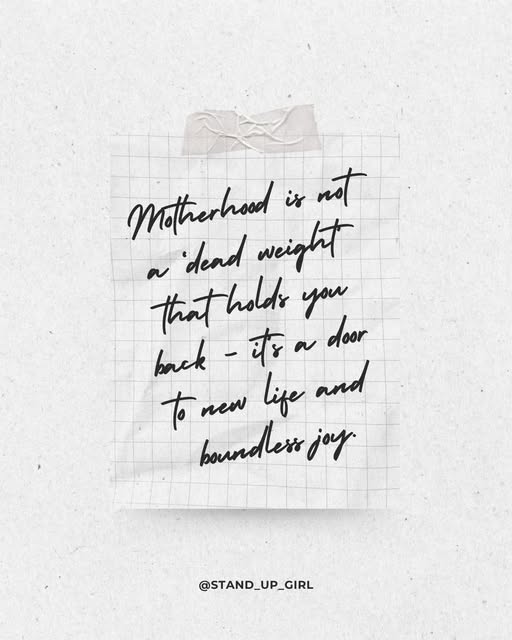 Motherhood is not
a 'dead weight'
that holds you
back - it's a door
to new life and
boundless joy.
@STAND_UP_GIRL